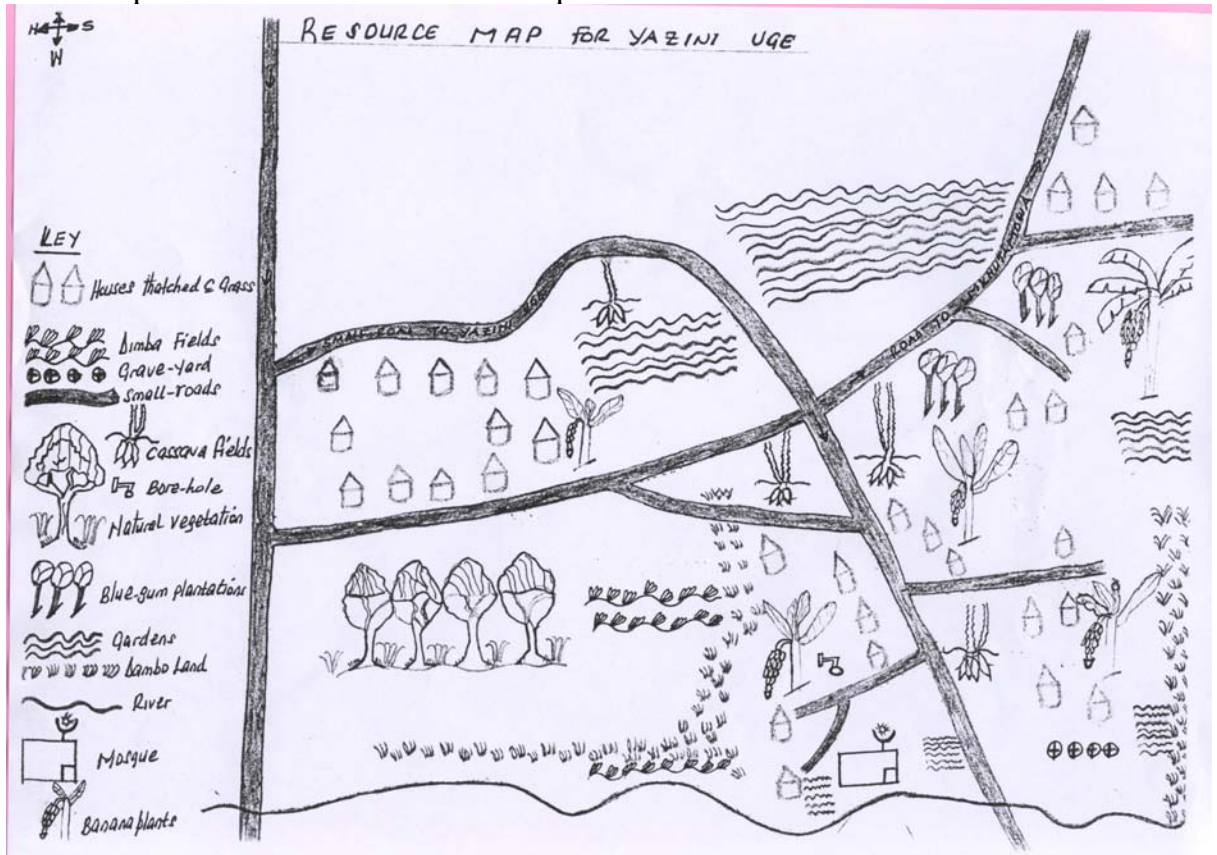 RESOURCE MAP FOR YAZINI UGE
S
W
KEY
Houses thatched & Grass
Dimba Fields
Grave-yard
Small-roads
Cassava Fields
Bore-hole
Natural vegetation
Blue-gum plantations
Gardens
Dambo Land
River
Mosque
Banana plants
SMALL ROAD TO YAZINI
ROAD TO